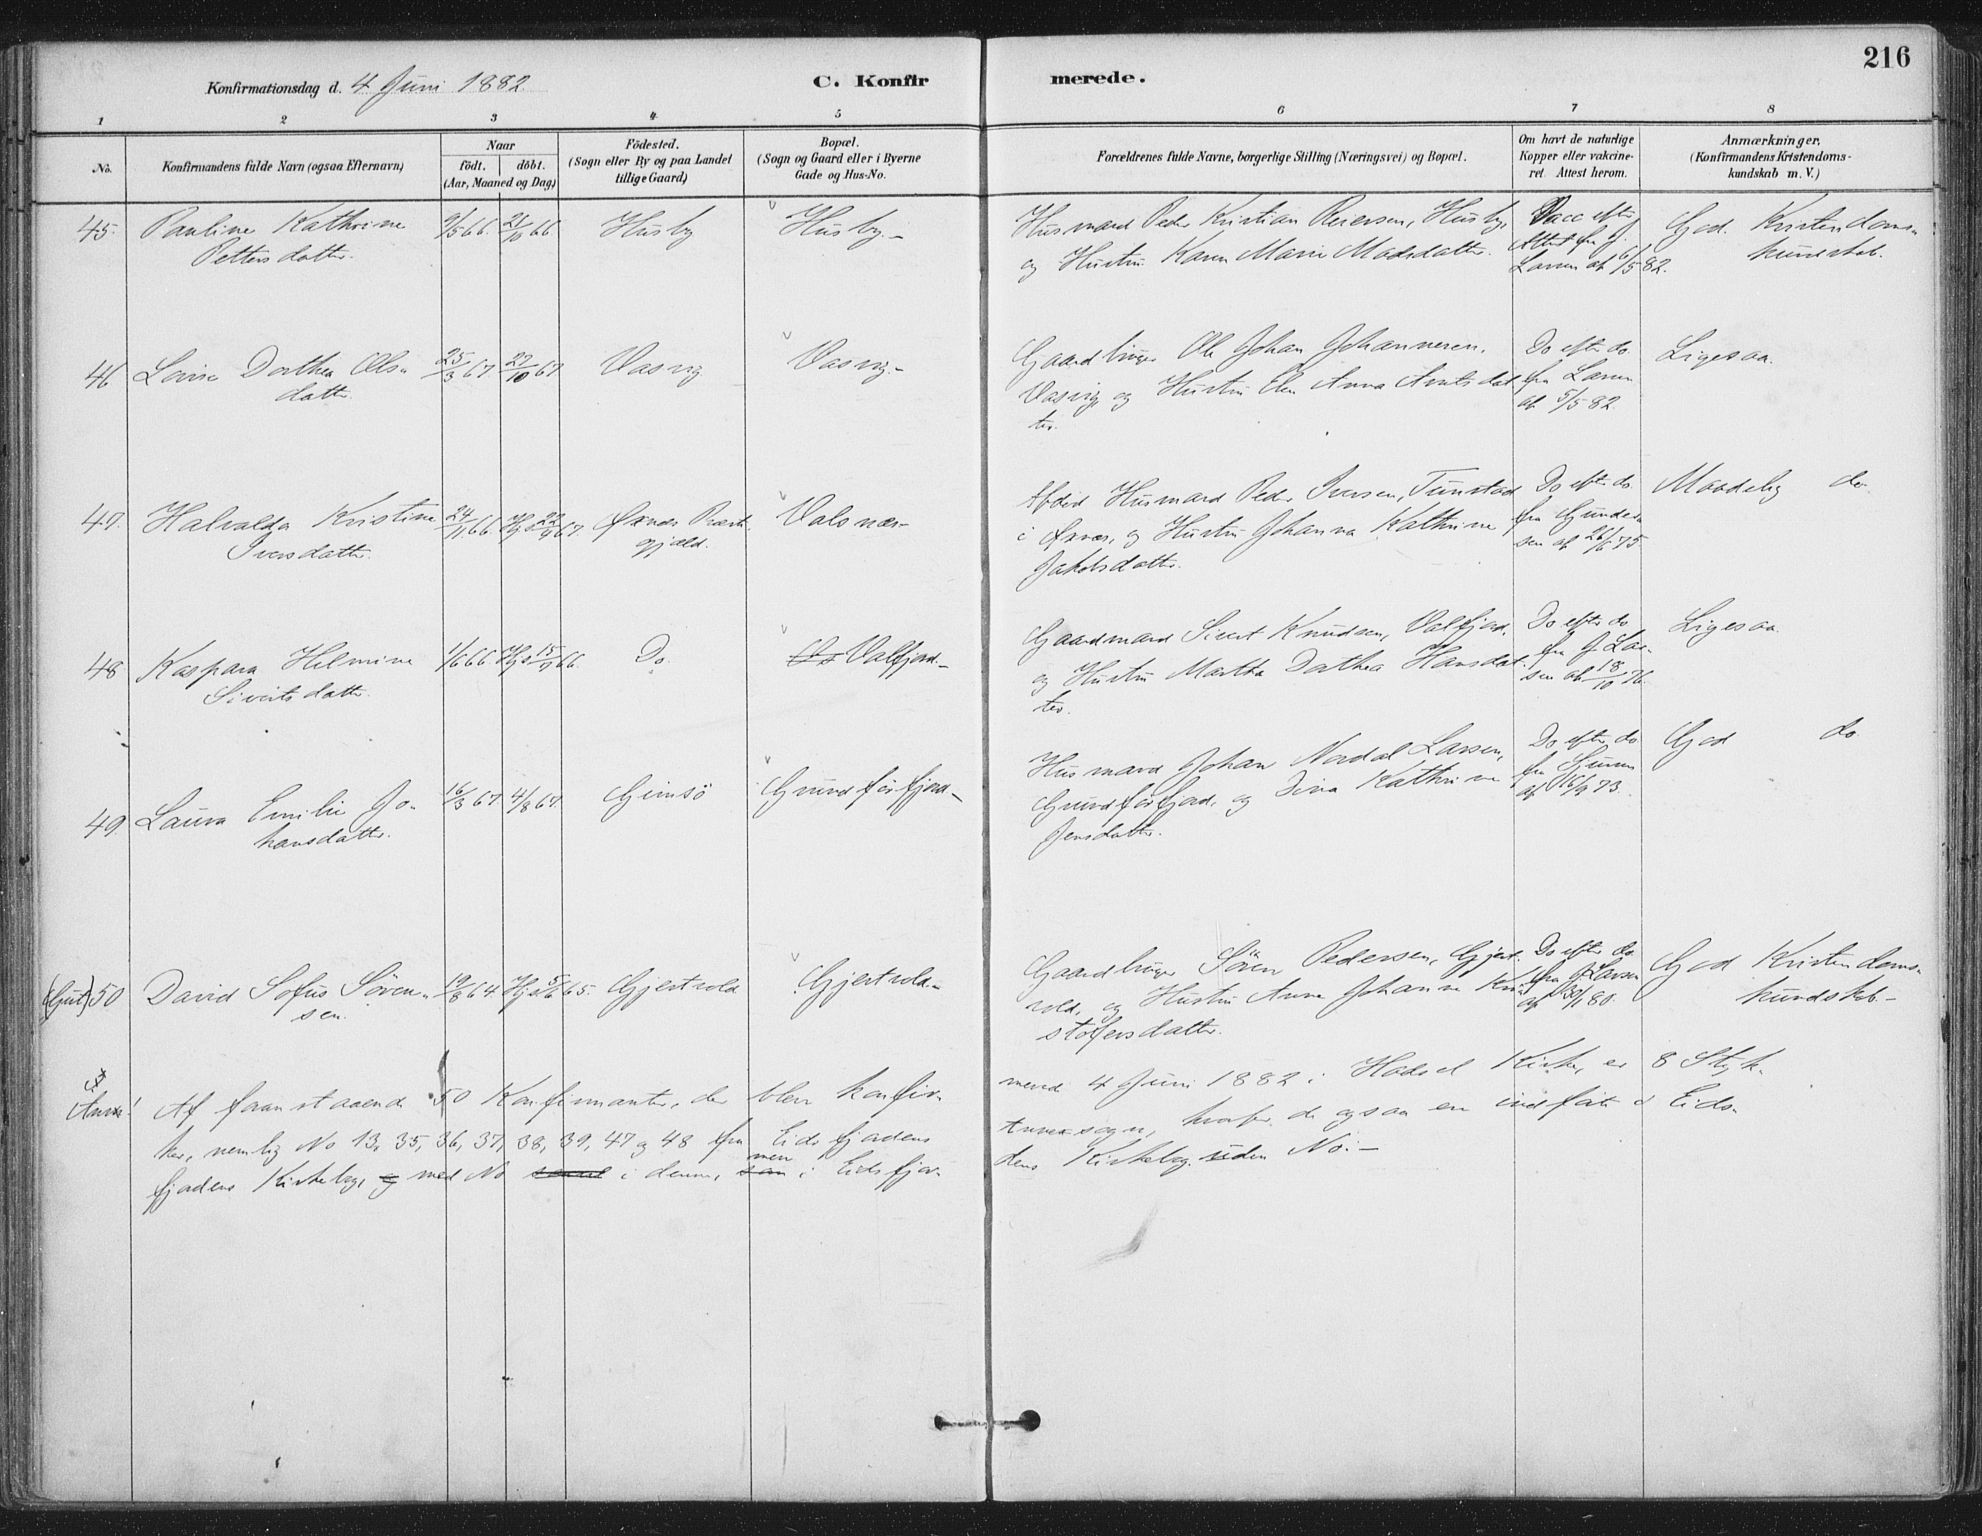 216
Konfirmationsdag d. 4 Juni 1882. C. Konfir merede.
1 2 3 4 5 6 7 8
No. Konfirmandens fulde Navn (ogsaa Efternavn)
Naar
födt. döbt.
(Aar, Maaned og Dag)
Födested.
(Sogn eller By og paa Landet
tillige Gaard)
Bopæl.
(Sogn og Gaard eller i Byerne
Gade og Hus-No.
Forældrenes fulde Navne, borgerlige Stilling (Næringsvei) og Bopæl.
Om havt de naturlige
Kopper eller vakcine-
ret. Attest herom.
Anmærkninger,
(Konfirmandens Kristendoms-
kundskab m. V.)
45. Pauline Kathrine
Petters datter.
9/5 66. 21/10 66
Husby
Husby.-
Husmand Peder Kristian Reiersen, Husby,
og Hustru Karen Marie Madsdatter.
Vacc efter
Attest fra J.
Larsen af 6/5 82.
God Kristendoms-
kundskab.
46 Lovise Dorthea Ols-
datter.
25/3 67. 27/10 67
Vasvig
Vasvig.-
Gaardbruger Ole Johan Johannesen,
Vasvig, og Hustru Elen Anna Arntsdat
ter.
Do efter do
fra Larsen
af 5/5 82.
Ligesaa.
47. Halvalda Kristine
Iversdatter.
24/11 66. Hj. 22/9 67.
Øxnes Præste
gjæld.
Valsnæs-
Afdød Husmand Peder Iversen, Tunstad
i Øxnæs, og Hustru Johanna Kathrine
Jakobsdatter.
Do efter do
fra Gunder-
sen af 26/6 75.
Maadelig do.
48 Kaspara Helmine
Siverts datter.
1/6 66. Hj. 15/7 66.
Do.
Valfjord-
Gaardmand Sivert Knudsen, Valfjord,
og Hustru Martha Dorthea Hansdat
ter.
Do efter do
fra J Lar-
sen af 18/10 76.
Ligesaa
49. Laura Emilie Jo-
hansdatter.
16/3 67. 4/8 67.
Gimsö
Grundförfjord-
Husmand Johan Nordal Larsen,
Grundförfjord, og Dina Kathrine
Jensdatter.
Do efter do
fra
af 16/9 73.
God do
(Gut) 50 David Sofus Sören-
sen.
19/8 64 Hj. 5/6 65.
Gjerstvold
Gjerstvold.-
Gaardbruger Sören Pedersen, Gjerst
vold, og Hustru Anne Johanna Kri
stofersdatter.
Do efter do
fra J Larsen
af 30/1 80.
God Kristendoms-
kundskab.-
Anm! Af foranstaaende 50 Konfirmanter, der blev konfir-
merede 4 Juni 1882 i Hadsel Kirke, er 8 Styk-
ker, nemlig No 13, 35, 36, 37, 38, 39, 47 og 48 fra Eidsfjordens
Annexsogn, hvorfor de ogsaa er indført i Eids-
fjordens Kirkebog, og med No samt i denne, men i Eidsfjor-
dens Kirkebog uden No.-